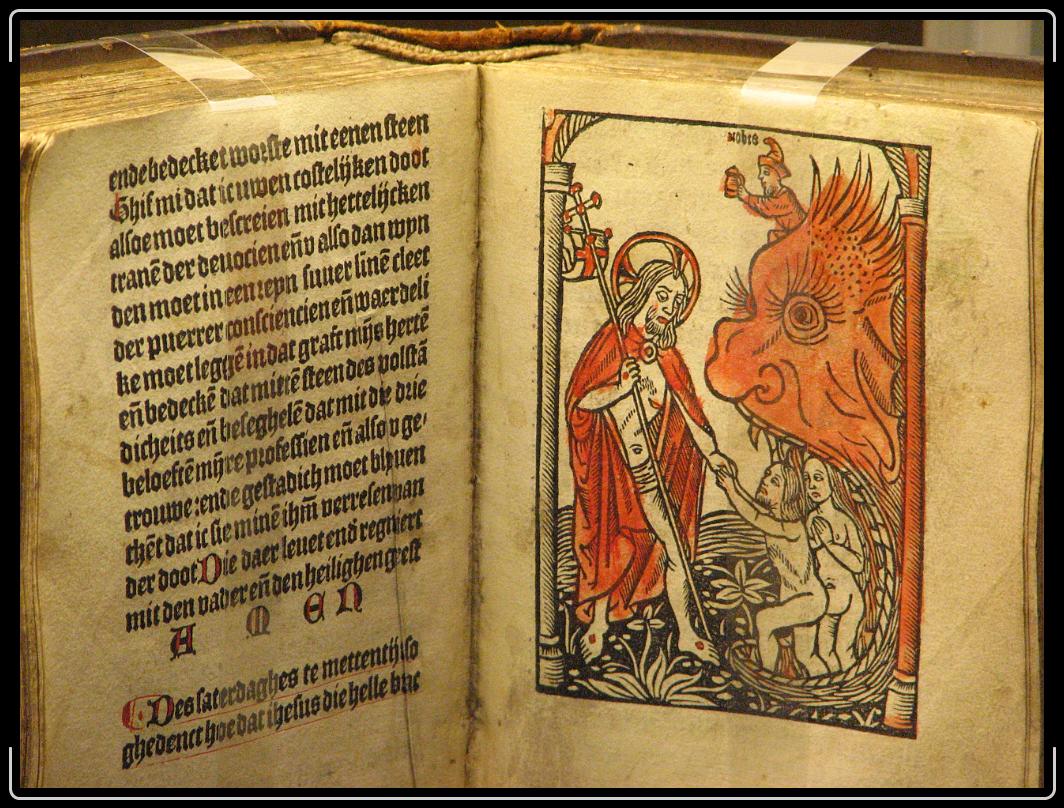 ende bedecket worste mit eenen steen
Ghif mi dat ic uwen costelijken doot
alsoe moet bescreien mit hertelijcken
tranē der deuocien eñ v also dan wyn
den moet in een reyn suuer linē cleet
der puerrer consciencien eñ waerdeli
ke moet leggē in dat graft mijs hertē
eñ bedeckē dat mittē steen des volstā
dicheits eñ beseghelē dat mit die drie
beloeftē mijre professien eñ also v ge
trouwe: ende gestadich moet blyuen
thēt dat ic sie minē ihm̄ verresen van
der doot Die daer leuet end regniert
mit den vader eñ den heilighen geest
A M E N
Des saterdaghes te mettentijt so
ghedenct hoe dat ihesus die helle brac